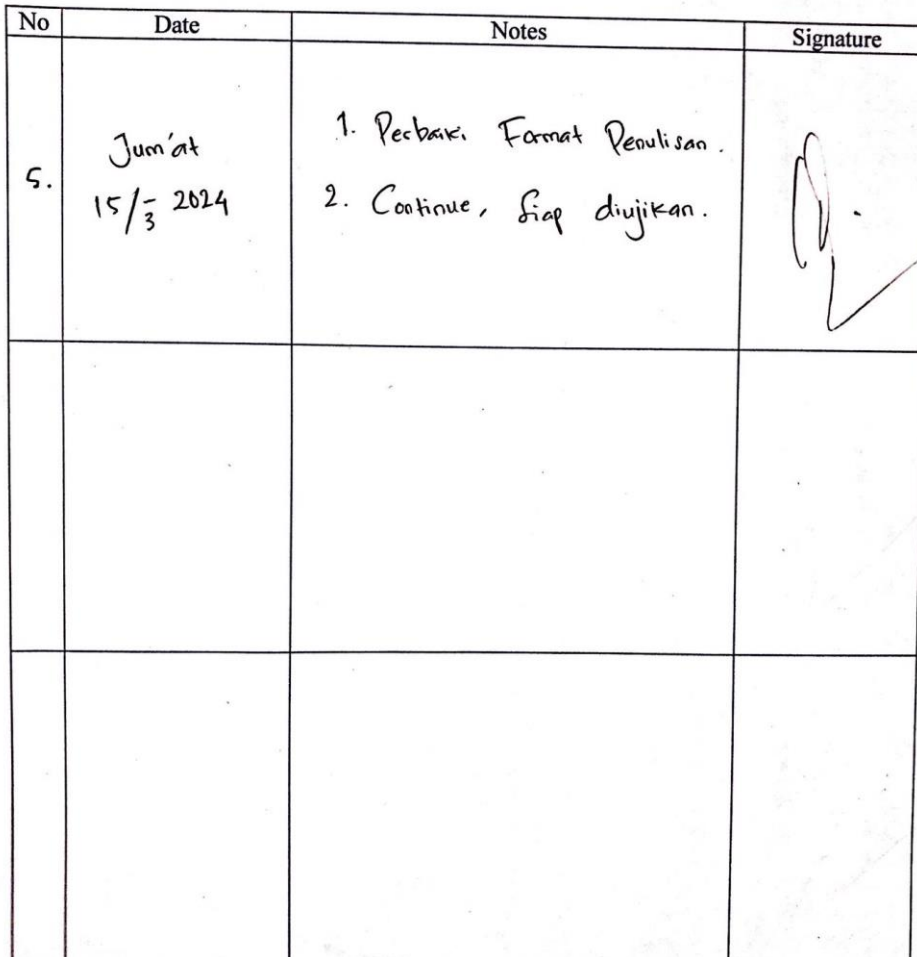 No Date Notes Signature
5.
Jum'at
15/3 2024
1. Perbaiki Format Penulisan.
2. Continue, Siap diujikan.